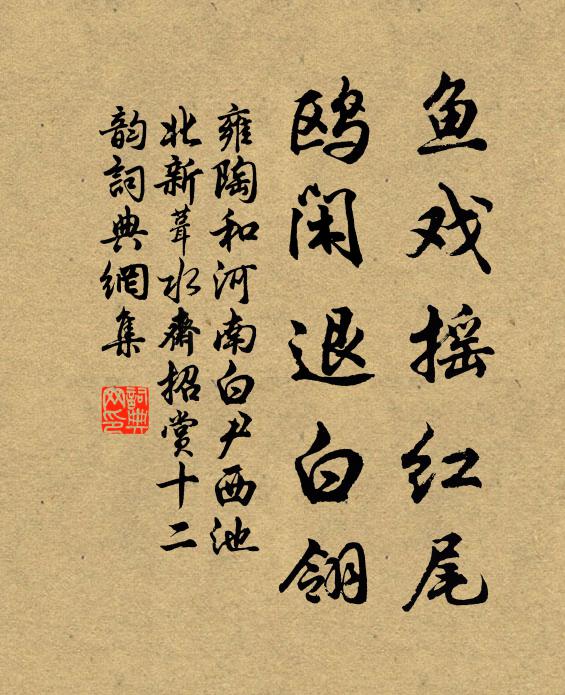 鱼戏摇红尾
鸥闲退白翎
雍陶和河南白尹西池
北新葺水斋招赏十二
韵詞典網集
詞典网印